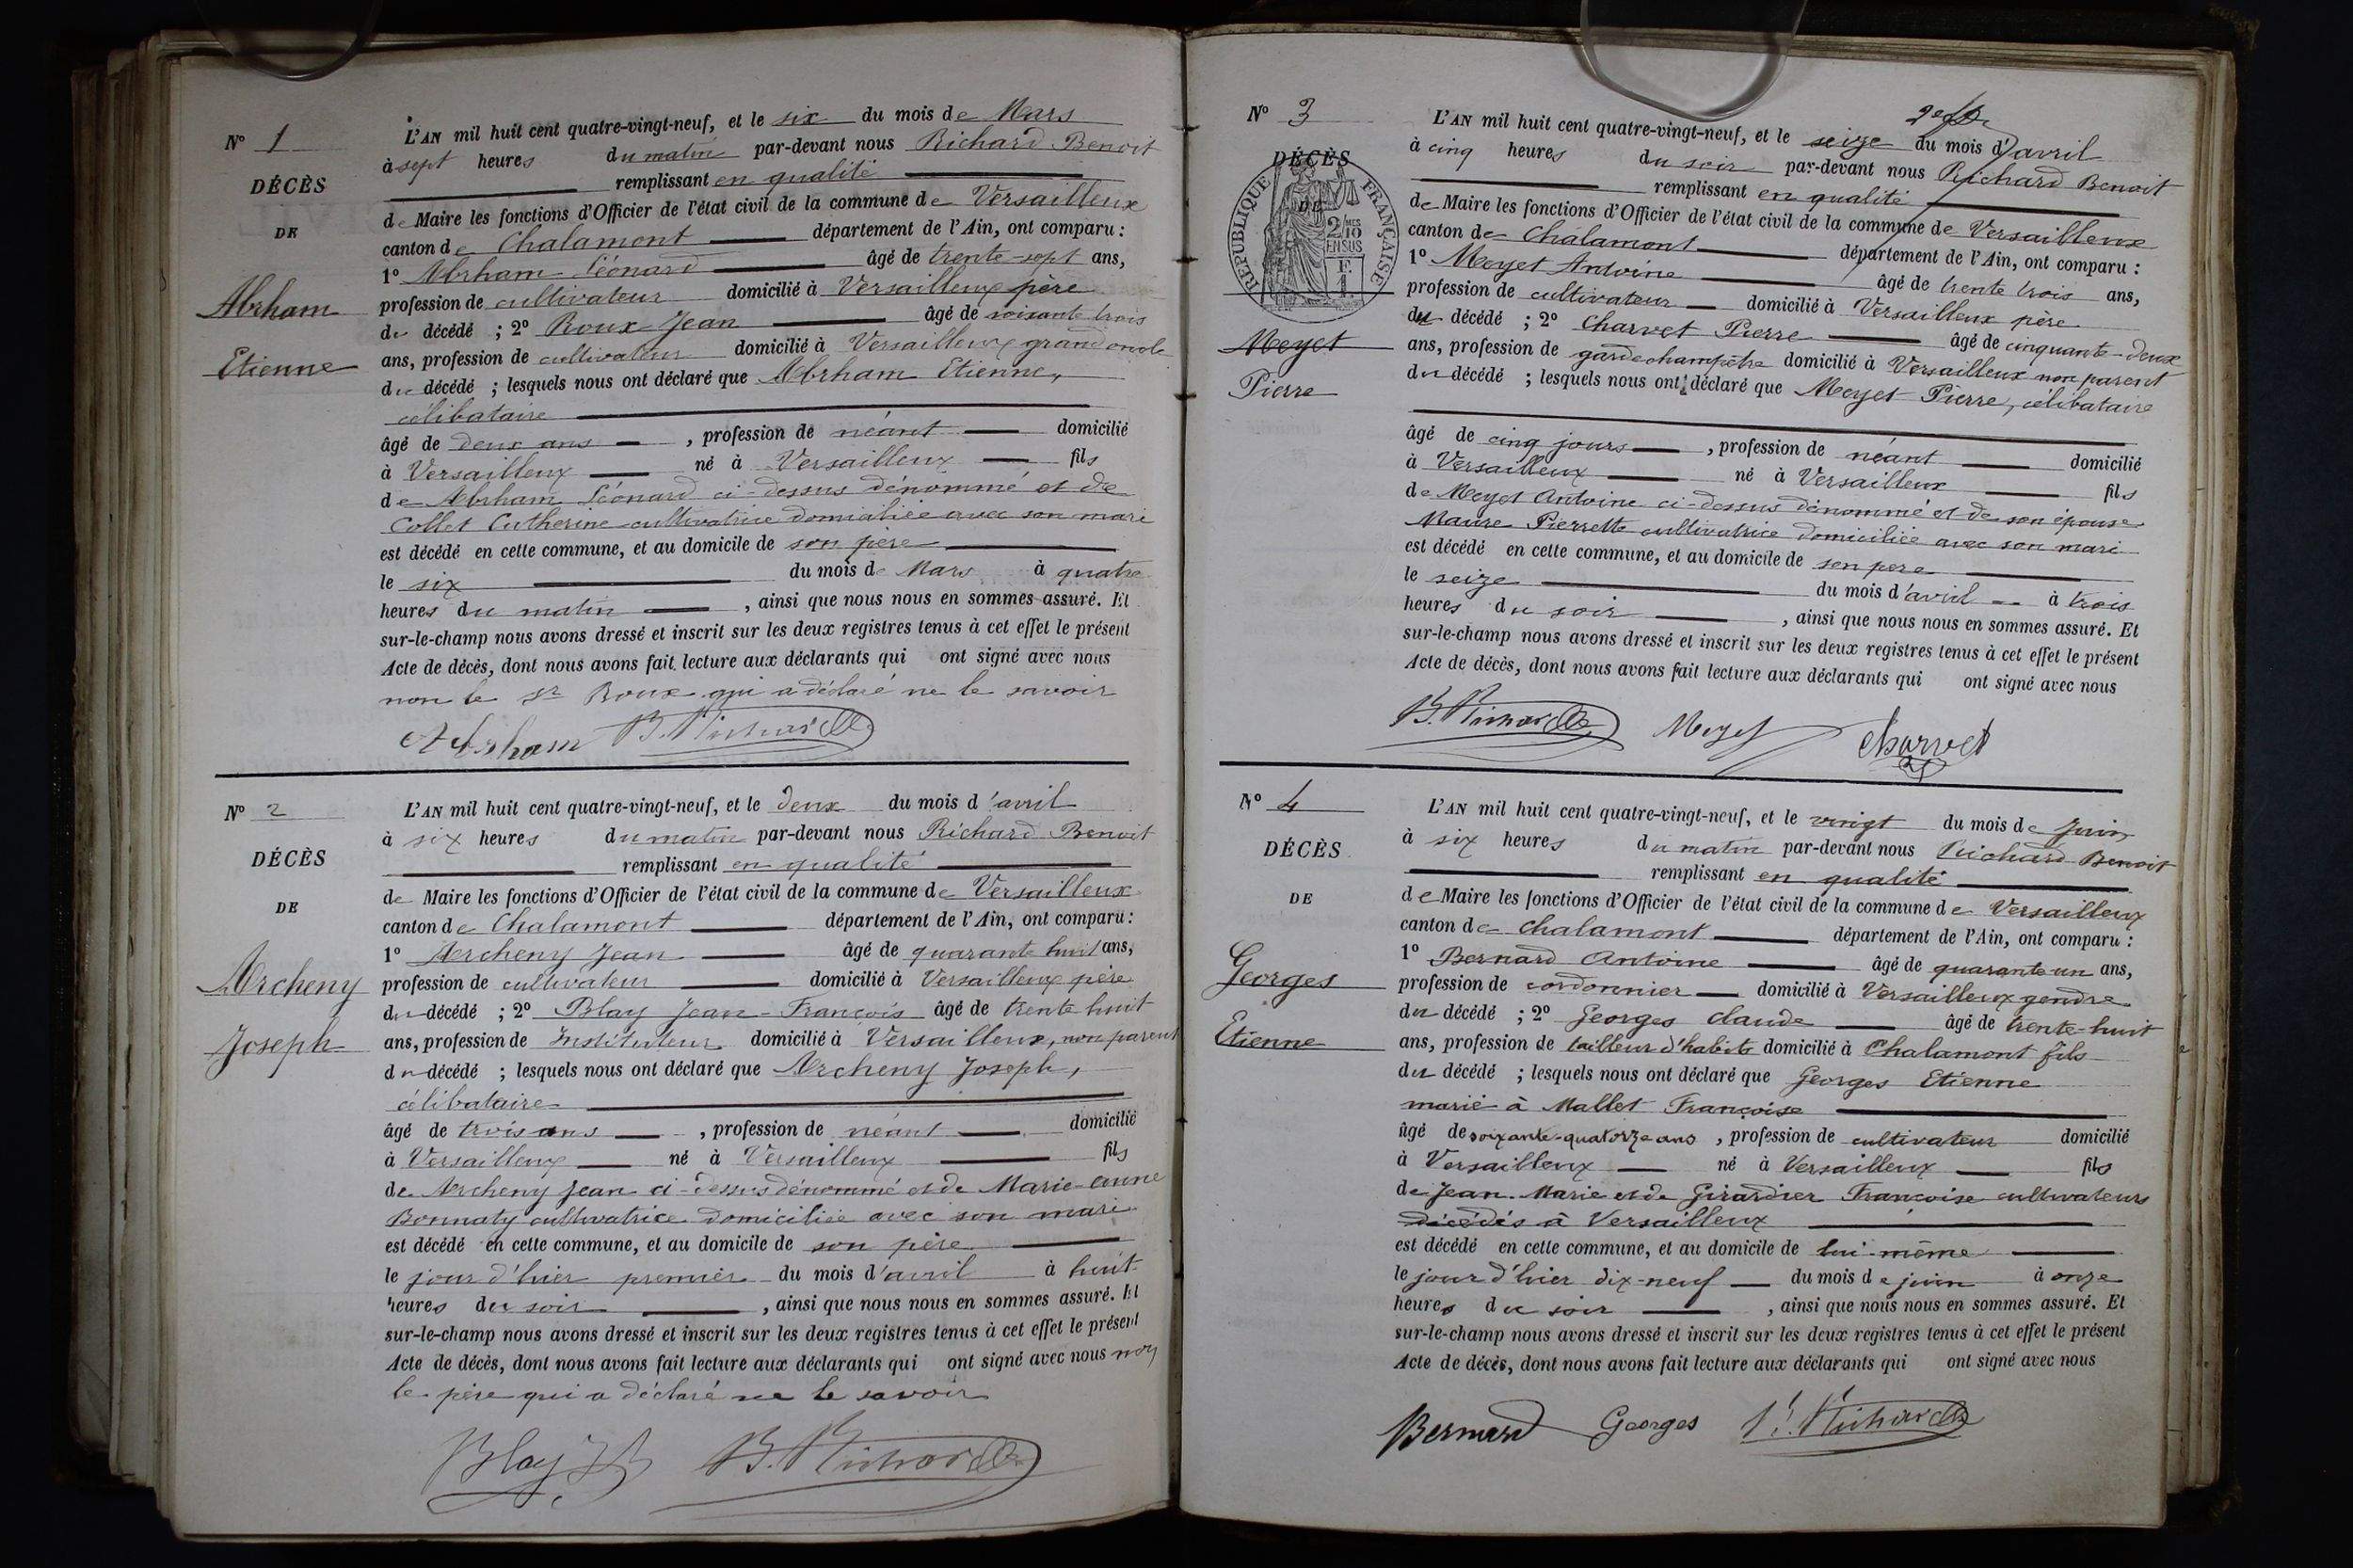 N° 1
DÉCÈS
DE
Abrham
Etienne
L'AN mil huit cent quatre-vingt-neuf, et le six du mois de Mars
à sept heures du matin par-devant nous Richard Benoit
remplissant en qualité
de Maire les fonctions d'Officier de l'état civil de la commune de Versailleux
canton de Chalamont département de l'Ain, ont comparu :
1° Abrham Léonard âgé de trente-sept ans,
profession de cultivateur domicilié à Versailleux père
du décédé ; 2° Roux Jean âgé de soixante trois
ans, profession de cultivateur domicilié à Versailleux grand oncle
du décédé ; lesquels nous ont déclaré que Abrham Etienne,
célibataire
âgé de deux ans , profession de néant domicilié
à Versailleux né à Versailleux fils
de Abrham Léonard ci-dessus dénommé et de
Collet Catherine cultivatrice domiciliée avec son mari
est décédé en cette commune, et au domicile de son père
le six du mois de Mars à quatre
heures du matin , ainsi que nous nous en sommes assuré. Et
sur-le-champ nous avons dressé et inscrit sur les deux registres tenus à cet effet le présent
Acte de décès, dont nous avons fait lecture aux déclarants qui ont signé avec nous
non le Sr Roux qui a déclaré ne le savoir
Abrham B. Richard
N° 2
DÉCÈS
DE
Archeny
Joseph
L'AN mil huit cent quatre-vingt-neuf, et le deux du mois d'avril
à six heures du matin par-devant nous Richard Benoit
remplissant en qualité
de Maire les fonctions d'Officier de l'état civil de la commune de Versailleux
canton de Chalamont département de l'Ain, ont comparu :
1° Archeny Jean âgé de quarante huit ans,
profession de cultivateur domicilié à Versailleux père
du décédé ; 2° Blay Jean-François âgé de trente huit
ans, profession de Instituteur domicilié à Versailleux, non parent
du décédé ; lesquels nous ont déclaré que Archeny Joseph,
célibataire
âgé de trois ans , profession de néant domicilié
à Versailleux né à Versailleux fils
de Archeny Jean ci-dessus dénommé et de Marie-Anne
Bonnaty cultivatrice domiciliée avec son mari
est décédé en cette commune, et au domicile de son père
le jour d'hier premier du mois d'avril à huit
heures du soir , ainsi que nous nous en sommes assuré. Et
sur-le-champ nous avons dressé et inscrit sur les deux registres tenus à cet effet le présent
Acte de décès, dont nous avons fait lecture aux déclarants qui ont signé avec nous non
le père qui a déclaré ne le savoir
Blay B. Richard
N° 3
DÉCÈS
DE
RÉPUBLIQUE FRANÇAISE
2/10MES
EN SUS
F.
1.
Meyet
Pierre
L'AN mil huit cent quatre-vingt-neuf, et le seize du mois d'avril
à cinq heures du soir par-devant nous Richard Benoit
remplissant en qualité
de Maire les fonctions d'Officier de l'état civil de la commune de Versailleux
canton de Chalamont département de l'Ain, ont comparu :
1° Meyet Antoine âgé de trente trois ans,
profession de cultivateur domicilié à Versailleux père
du décédé ; 2° Charvet Pierre âgé de cinquante-deux
ans, profession de garde champêtre domicilié à Versailleux non parent
du décédé ; lesquels nous ont déclaré que Meyet Pierre, célibataire
âgé de cinq jours , profession de néant domicilié
à Versailleux né à Versailleux fils
de Meyet Antoine ci-dessus dénommé et de son épouse
Maure Pierrette cultivatrice domiciliée avec son mari
est décédé en cette commune, et au domicile de son père
le seize du mois d'avril à trois
heures du soir , ainsi que nous nous en sommes assuré. Et
sur-le-champ nous avons dressé et inscrit sur les deux registres tenus à cet effet le présent
Acte de décès, dont nous avons fait lecture aux déclarants qui ont signé avec nous
B. Richard Meyet Charvet
N° 4
DÉCÈS
DE
Georges
Etienne
L'AN mil huit cent quatre-vingt-neuf, et le vingt du mois de Juin
à six heures du matin par-devant nous Richard Benoit
remplissant en qualité
de Maire les fonctions d'Officier de l'état civil de la commune de Versailleux
canton de Chalamont département de l'Ain, ont comparu :
1° Bernard Antoine âgé de quarante un ans,
profession de cordonnier domicilié à Versailleux gendre
du décédé ; 2° Georges Claude âgé de trente-huit
ans, profession de tailleur d'habits domicilié à Chalamont fils
du décédé ; lesquels nous ont déclaré que Georges Etienne
marié à Mallet Françoise
âgé de soixante-quatorze ans , profession de cultivateur domicilié
à Versailleux né à Versailleux fils
de Jean-Marie et de Girardier Françoise cultivateurs
décédés à Versailleux
est décédé en cette commune, et au domicile de lui-même
le jour d'hier dix-neuf du mois de juin à onze
heures du soir , ainsi que nous nous en sommes assuré. Et
sur-le-champ nous avons dressé et inscrit sur les deux registres tenus à cet effet le présent
Acte de décès, dont nous avons fait lecture aux déclarants qui ont signé avec nous
Bernard Georges B. Richard